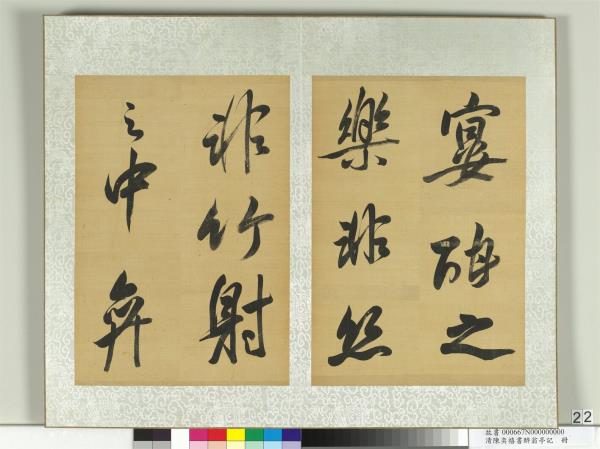 宴酣之
樂非絲
非竹射
之中弈
22
故書000667N000000000
清陳奕禧書醉翁亭記 冊